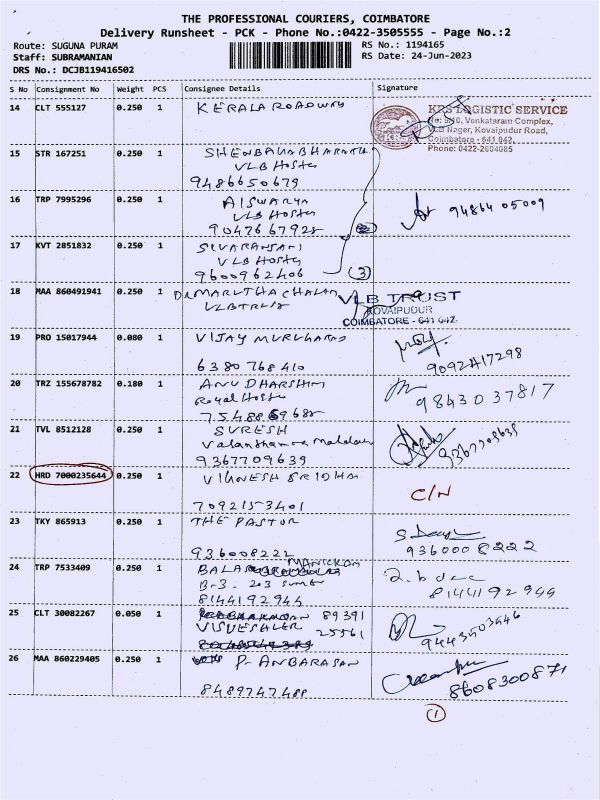 THE PROFESSIONAL COURIERS, COIMBATORE
Delivery Runsheet - PCK - Phone No.:0422-3505555 - Page No.:2
Route: SUGUNA PURAM
RS No.: 1194165
Staff: SUBRAMANIAN
RS Date: 24-Jun-2023
DRS No.: DCJB119416502
S No Consignment No Weight PCS Consignee Details Signature
14 CLT 555127 0.250 1 KERALA ROADWAY
KRS LOGISTIC SERVICE
Venkataram Complex,
VLB Nager, Kovaipudur Road,
Coimbatore - 641 042.
Phone: 0422-2604085
15 STR 167251 0.250 1 SHENBAGA BHARATHI
VLB Hostel
9486650679
16 TRP 7995296 0.250 1 AISWARYA
VLB Hostel
9047667928
9486405009
17 KVT 2851832 0.250 1 SIVARANJANI
VLB Hostel
9600962406 (3)
18 MAA 860491941 0.250 1 DR MARUTHACHALAM
VLB TRUST
VLB TRUST
KOVAIPUDUR
COIMBATORE - 641 042.
19 PRO 15017944 0.080 1 VIJAY MURUGAN
6380768410
9092417298
20 TRZ 155678782 0.180 1 ANU DHARSHINI
Royal Hostel
9843037817
21 TVL 8512128 0.250 1 SURESH
9367709639
22 HRD 7000235644 0.250 1 VIGNESH SRIDHA
7092153401
C/N
23 TKY 865913 0.250 1 THE PASTOR
936008222
9360008222
24 TRP 7533409 0.250 1 BALA MANICKAM
B-3. 203
8144192944
8144192944
25 CLT 30082267 0.050 1 89391
25561
9443503446
26 MAA 860229405 0.250 1 P. ANBARASAN
8489747488
8608300871
(1)